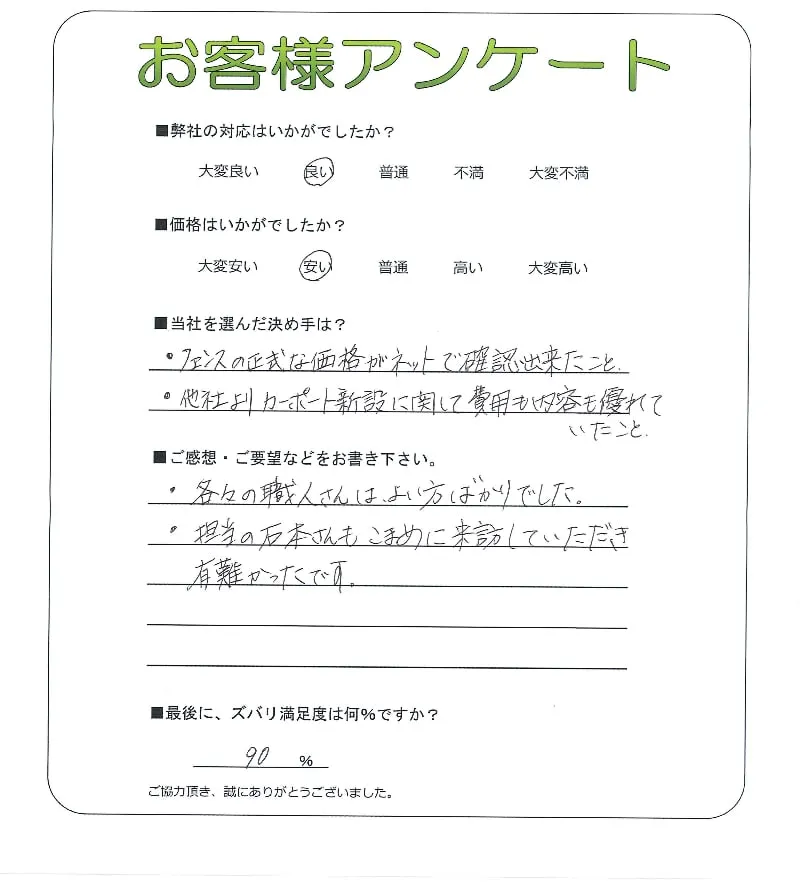 お客様アンケート
■弊社の対応はいかがでしたか？
大変良い 良い 普通 不満 大変不満
■価格はいかがでしたか？
大変安い 安い 普通 高い 大変高い
■当社を選んだ決め手は？
・フェンスの正式な価格がネットで確認出来たこと.
・他社よりカーポート新設に関して費用も内容も優れて
いたこと.
■ご感想・ご要望などをお書き下さい。
・各々の職人さんは、よい方ばかりでした。
・担当の石本さんもこまめに来訪していただき
有難かったです。
■最後に、ズバリ満足度は何％ですか？
90 ％
ご協力頂き、誠にありがとうございました。